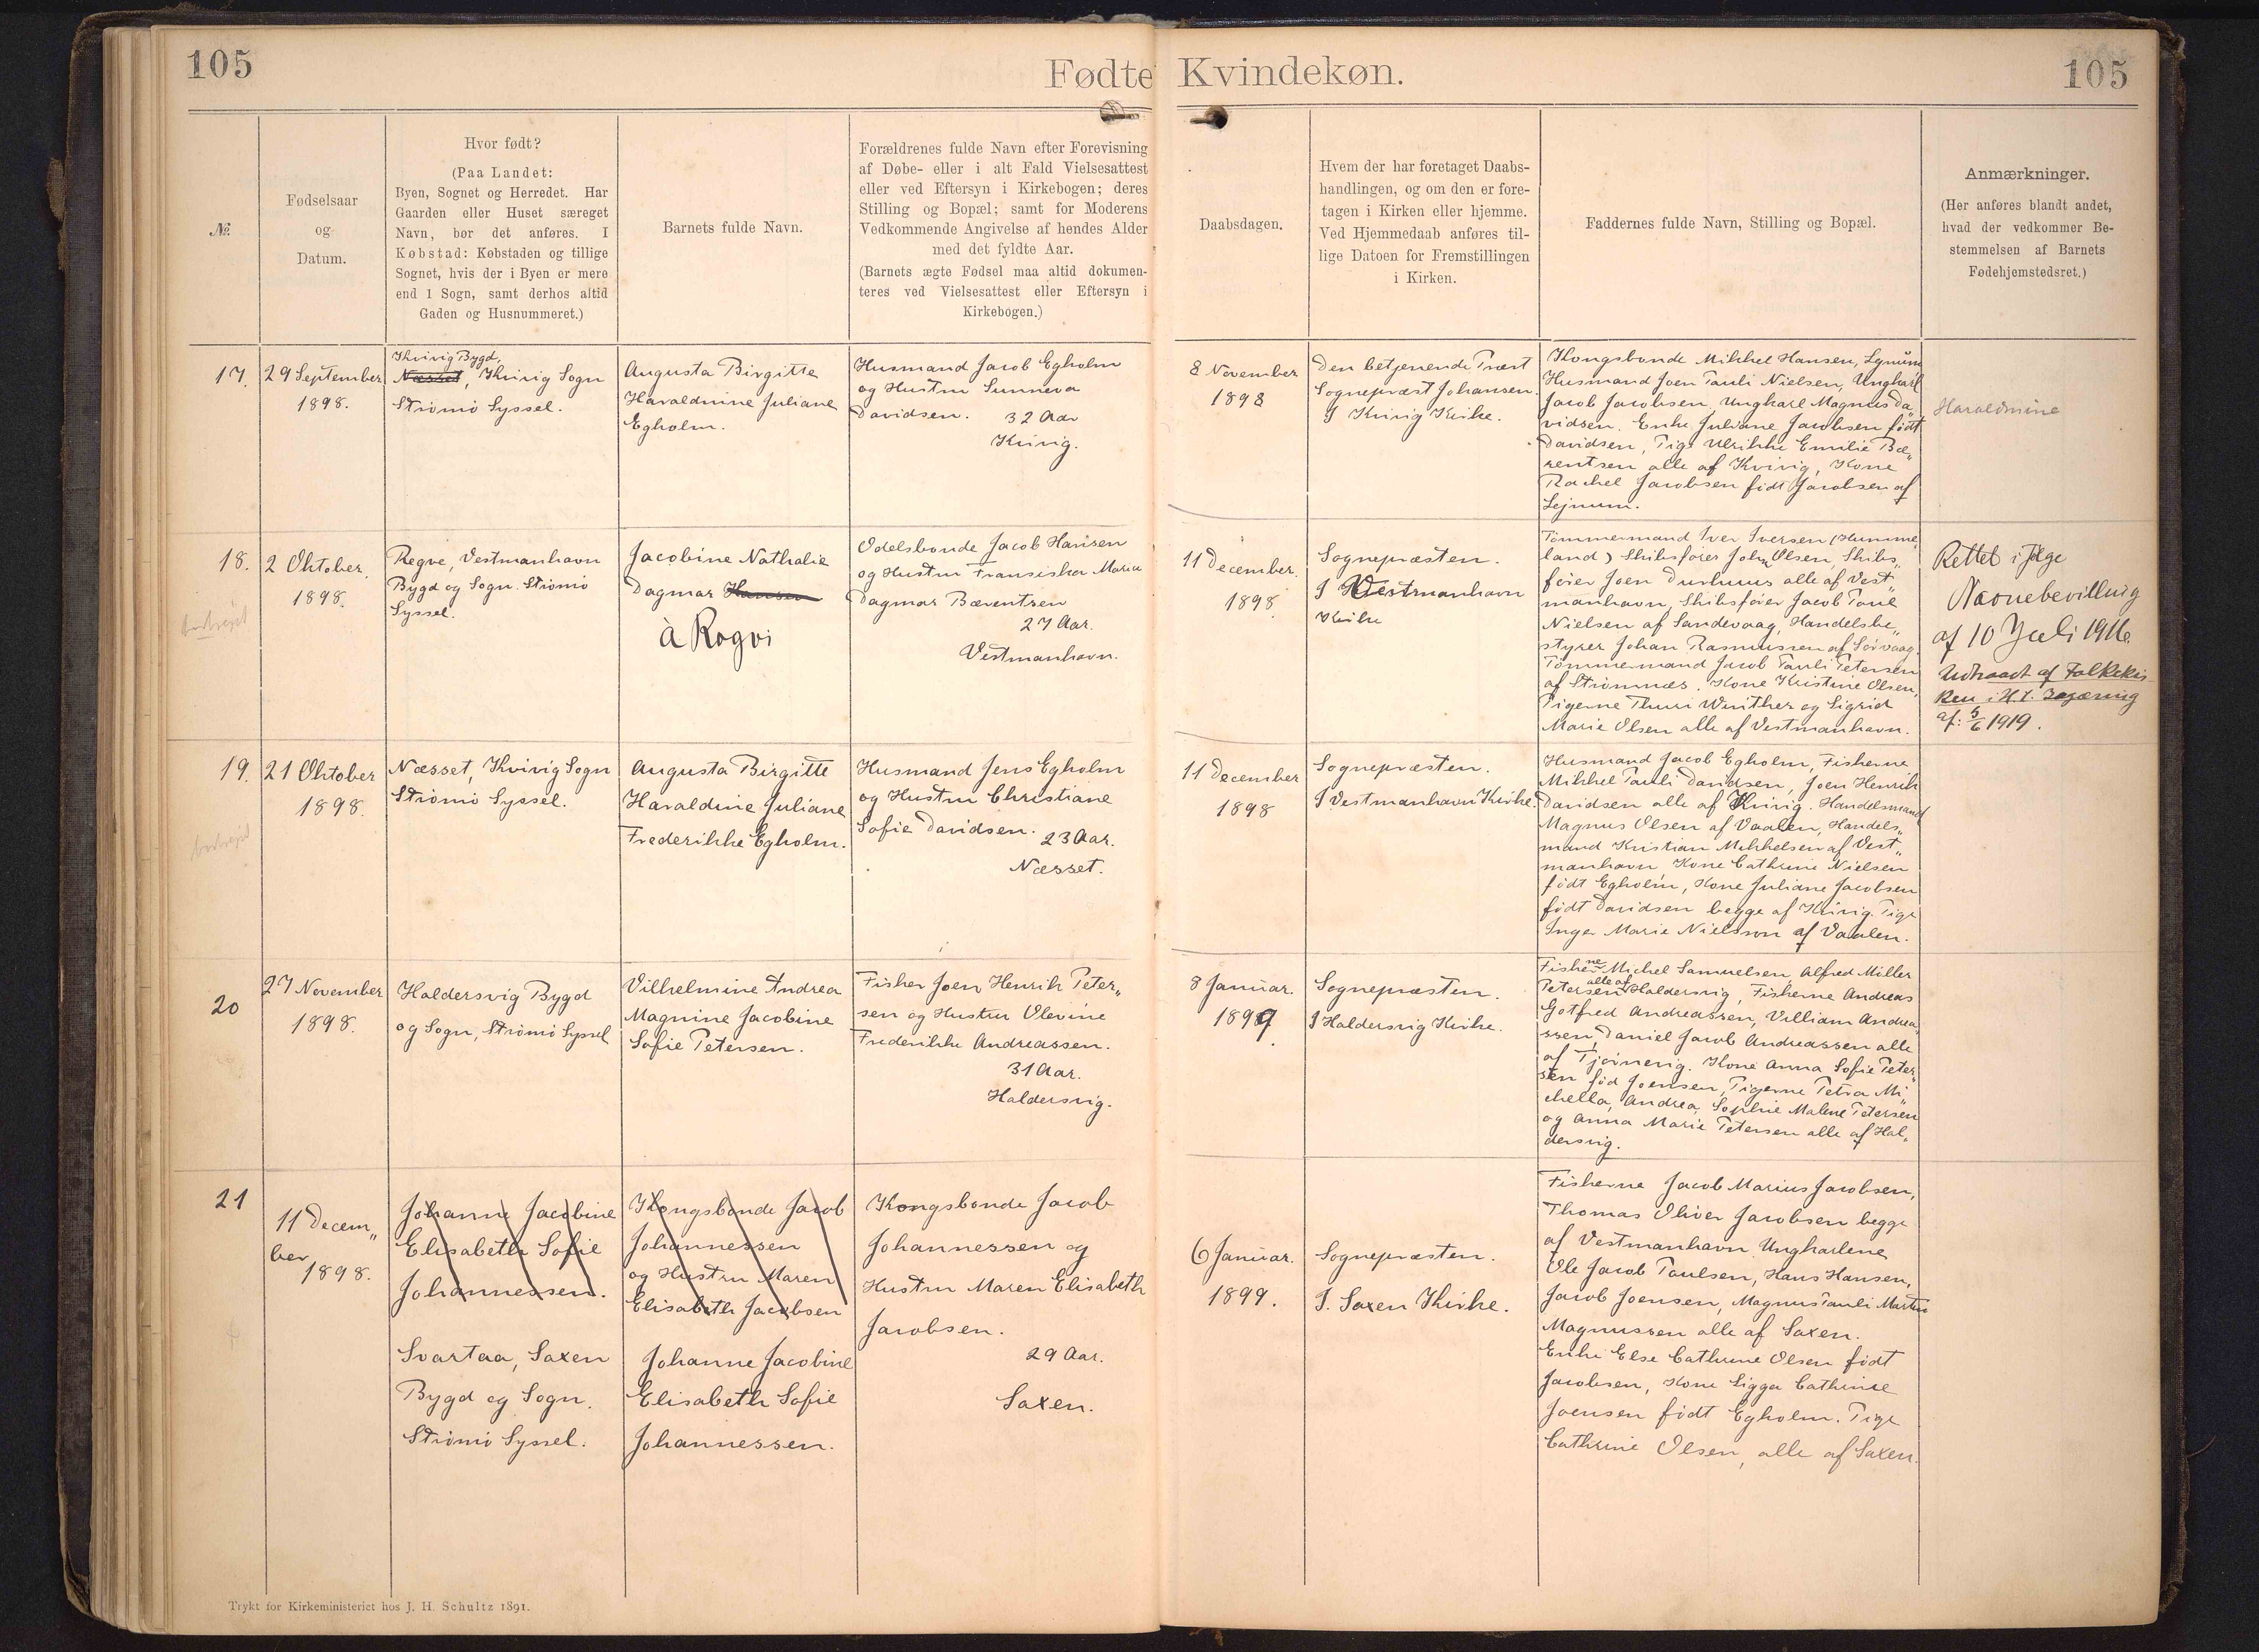 105
Fødte Kvindekøn.
105
№
Fødselsaar
og
Datum.
Hvor født?
(Paa Landet:
Byen, Sognet og Herredet. Har
Gaarden eller Huset særeget
Navn, bør det anføres. I
Købstad: Købstaden og tillige
Sognet, hvis der i Byen er mere
end 1 Sogn, samt derhos altid
Gaden og Husnummeret.)
Barnets fulde Navn.
Forældrenes fulde Navn efter Forevisning
af Døbe- eller i alt Fald Vielsesattest
eller ved Eftersyn i Kirkebogen; deres
Stilling og Bopæl; samt for Moderens
Vedkommende Angivelse af hendes Alder
med det fyldte Aar.
(Barnets ægte Fødsel maa altid dokumen-
teres ved Vielsesattest eller Eftersyn i
Kirkebogen.)
Daabsdagen.
Hvem der har foretaget Daabs-
handlingen, og om den er fore-
tagen i Kirken eller hjemme.
Ved Hjemmedaab anføres til-
lige Datoen for Fremstillingen
i Kirken.
Faddernes fulde Navn, Stilling og Bopæl.
Anmærkninger.
(Her anføres blandt andet,
hvad der vedkommer Be-
stemmelsen af Barnets
Fødehjemstedsret.)
17.
29 September
1898.
Kvivig Bygd,
Næsset, Kvivig Sogn
Strömö Syssel.
Augusta Birgitte
Haraldmine Juliane
Egholm.
Husmand Jacob Egholm
og Hustru Sunneva
Davidsen. 32 Aar
Kvivig.
8 November
1898
Den betjenende Præst
Sognepræst Johansen.
I Kvivig Kirke.
Kongsbonde Mikkel Hansen, Lejnum
Husmand Joen Pauli Nielsen, Ungkarl
Jacob Jacobsen, Ungkarl Magnus Da„
vidsen. Enke Juliane Jacobsen født
Davidsen, Pige Ulrikke Emilie Bæ„
rentsen alle af Kvivig, Kone
Rachel Jacobsen født Jacobsen af
Lejnum.
Haraldmine
18.
2 Oktober.
1898.
Regve, Vestmanhavn
Bygd og Sogn. Strömö
Syssel.
Jacobine Nathalie
Dagmar Hansen
à Rogvi
Odelsbonde Jacob Hansen
og Hustru Fransiska Maria
Dagmar Bærentsen
27 Aar.
Vestmanhavn.
11 December.
1898
Sognepræsten.
I Vestmanhavn
Kirke
Tømmermand Iver Iversen (Humme„
land) Skibsfører John Olsen, Skibs„
fører Joen Durhuus alle af Vest„
manhavn, Skibsfører Jacob Pauli
Nielsen af Sandevaag, Handelsbe„
styrer Johan Rasmussen af Sörvaag.
Tømmermand Jacob Pauli Petersen
af Strömnæs. Kone Kristine Olsen,
Pigerne Thuri Winther og Sigrid
Marie Olsen alle af Vestmanhavn.
Rettet i Følge
Navnebevilling
af 10 Juli 1916
Udtraadt af Folkekir-
ken i H.t. Begæring
af: 5/6 1919.
19.
21 Oktober
1898.
bortrejst
Næsset, Kvivig Sogn
Strömö Syssel.
Augusta Birgitte
Haraldine Juliane
Frederikke Egholm.
Husmand Jens Egholm
og Hustru Christiane
Sofie Davidsen. 23 Aar.
Næsset.
11 December
1898
Sognepræsten.
I Vestmanhavn Kirke.
Husmand Jacob Egholm, Fiskerne
Mikkel Pauli Davidsen, Joen Henrik
Davidsen alle af Kvivig. Handelsmand
Magnus Olsen af Vaalen, Handels„
mand Kristian Mikkelsen af Vest„
manhavn Kone Cathrine Nielsen
født Egholm, Kone Juliane Jacobsen
født Davidsen begge af Kvivig. Pige
Inger Marie Nielsson af Vaalen.
20
27 November
1898.
Haldersvig Bygd
og Sogn, Strömö Syssel
Vilhelmine Andrea
Magnine Jacobine
Sofie Petersen.
Fisker Joen Henrik Peter„
sen og Hustru Olevine
Frederikke Andreassen.
31 Aar.
Haldersvig.
8 Januar.
1899
Sognepræsten.
I Haldersvig Kirke.
Fiskerne Michel Samuelsen Alfred Miller
Petersen alle af Haldersvig, Fiskerne Andreas
Gotfred Andreassen, Villiam Andrea„
ssen, Daniel Jacob Andreassen alle
af Tjörnevig. Kone Anna Sofie Peter„
sen fød Joensen, Pigerne Petra Mi„
chella, Andrea Sophie Malene Petersen
og Anna Marie Petersen alle af Hal„
dersvig.
21
11 Decem„
ber
1898.
Johanne Jacobine
Elisabeth Sofie
Johannessen.
Svartaa, Saxen
Bygd og Sogn.
Strömö Syssel.
Kongsbonde Jacob
Johannessen
og Hustru Maren
Elisabeth Jacobsen
Johanne Jacobine
Elisabeth Sofie
Johannessen.
Kongsbonde Jacob
Johannessen og
Hustru Maren Elisabeth
Jacobsen.
29 Aar.
Saxen.
6 Januar.
1899.
Sognepræsten.
I. Saxen Kirke.
Fiskerne Jacob Marius Jacobsen,
Thomas Oliver Jacobsen begge
af Vestmanhavn. Ungkarlene
Ole Jacob Poulsen, Hans Hansen,
Jacob Joensen, Magnus Pauli Martin
Magnussen alle af Saxen.
Enke Else Cathrine Olsen født
Jacobsen, Kone Sigga Cathrine
Joensen født Egholm. Pige
Cathrine Olsen, alle af Saxen.
Trykt for Kirkeministeriet hos J. H. Schultz 1891.